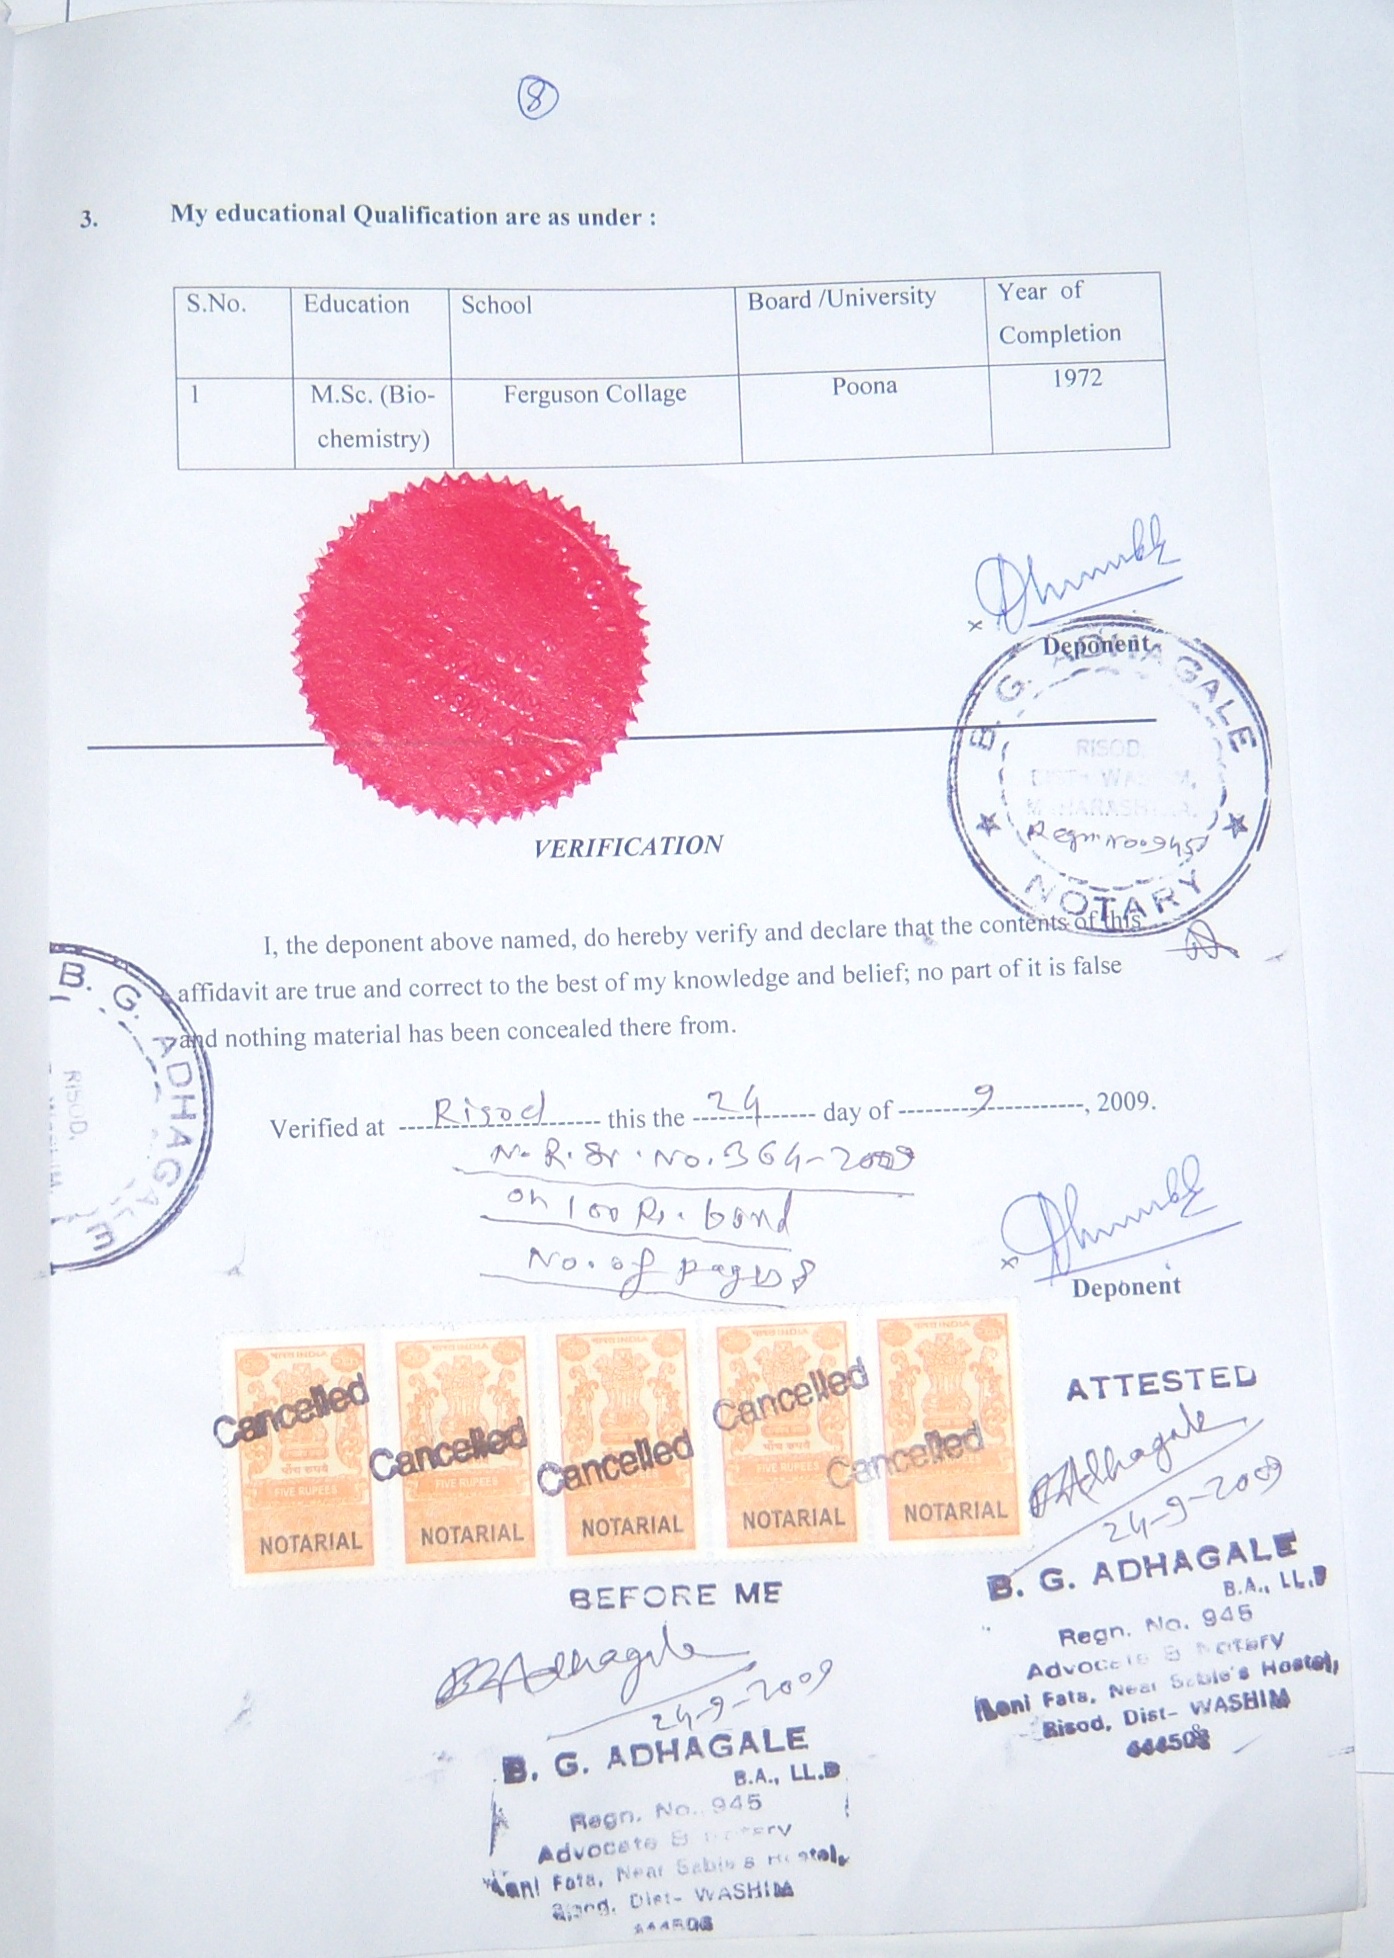 8
3. My educational Qualification are as under :
S.No. Education School Board /University Year of Completion
1 M.Sc. (Bio-chemistry) Ferguson Collage Poona 1972
Deponent
B. G. ADHAGALE
RISOD
MAHARASHTRA.
NOTARY
VERIFICATION
I, the deponent above named, do hereby verify and declare that the contents of this
affidavit are true and correct to the best of my knowledge and belief; no part of it is false
and nothing material has been concealed there from.
B. G. ADHAGALE
RISOD,
Verified at Risod this the 24 day of 9, 2009.
N. R. Sr. No. 364-2009
on 100 Rs. bond
No. of pages 8
Deponent
भारत INDIA भारत INDIA भारत INDIA भारत INDIA भारत INDIA
Cancelled Cancelled Cancelled Cancelled Cancelled
पाँच रुपये पाँच रुपये
FIVE RUPEES FIVE RUPEES FIVE RUPEES
NOTARIAL NOTARIAL NOTARIAL NOTARIAL NOTARIAL
ATTESTED
BGAdhagale
24-9-2009
B. G. ADHAGALE
B.A., LL.B
Regn. No. 945
Advocate & Notary
Loni Fata, Near Sable's Hostel,
Risod, Dist- WASHIM
444506
BEFORE ME
BGAdhagale
24-9-2009
B. G. ADHAGALE
B.A., LL.B
Regn. No. 945
Advocate & Notary
Loni Fata, Near Sable's Hostel,
Risod, Dist- WASHIM
444506